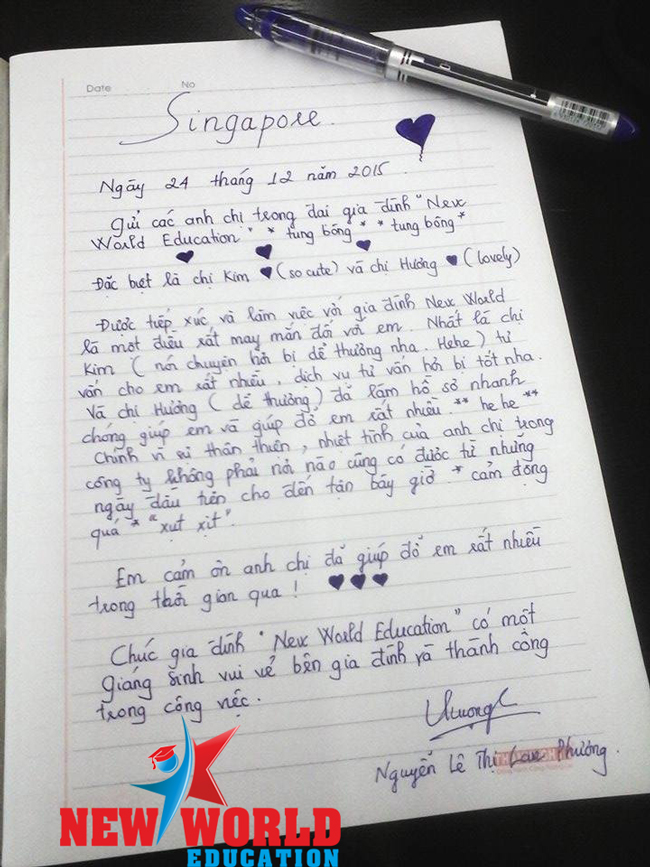 Date No
Singapore.
Ngày 24 tháng 12 năm 2015.
Gửi các anh chị trong đai gia đình "New
World Education" * tung bông * * tung bông *
Đặc biệt là chị Kim (so cute) và chị Hương (lovely)
Được tiếp xúc và làm việc với gia đình New World
là một điều rất may mắn đối với em. Nhất là chị
Kim (nói chuyện hơi bị dễ thương nha. Hehe) tư
vấn cho em rất nhiều, dịch vụ tư vấn hơi bị tốt nha.
Và chị Hương (dễ thương) đã làm hồ sơ nhanh
chóng giúp em và giúp đỡ em rất nhiều ** he he **
Chính vì sự thân thiện, nhiệt tình của anh chị trong
công ty không phải nơi nào cũng có được từ những
ngày đầu tiên cho đến tận bây giờ. * cảm động
quá * "xụt xịt".
Em cảm ơn anh chị đã giúp đỡ em rất nhiều
trong thời gian qua!
Chúc gia đình "New World Education" có một
giáng sinh vui vẻ bên gia đình và thành công
trong công việc.
Nguyễn Lê Thị Phương.
NEW WORLD
EDUCATION